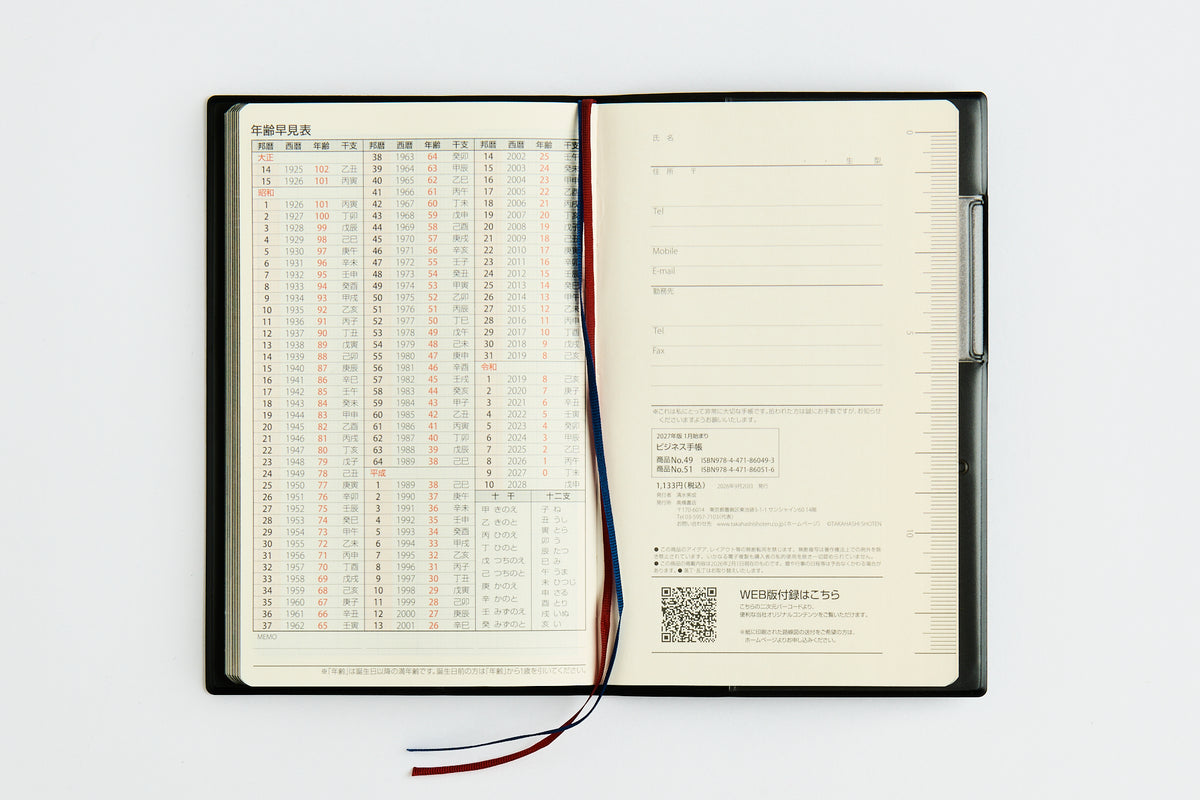 年齢早見表
邦暦 西暦 年齢 干支
大正
14 1925 102 乙丑
15 1926 101 丙寅
昭和
1 1926 101 丙寅
2 1927 100 丁卯
3 1928 99 戊辰
4 1929 98 己巳
5 1930 97 庚午
6 1931 96 辛未
7 1932 95 壬申
8 1933 94 癸酉
9 1934 93 甲戌
10 1935 92 乙亥
11 1936 91 丙子
12 1937 90 丁丑
13 1938 89 戊寅
14 1939 88 己卯
15 1940 87 庚辰
16 1941 86 辛巳
17 1942 85 壬午
18 1943 84 癸未
19 1944 83 甲申
20 1945 82 乙酉
21 1946 81 丙戌
22 1947 80 丁亥
23 1948 79 戊子
24 1949 78 己丑
25 1950 77 庚寅
26 1951 76 辛卯
27 1952 75 壬辰
28 1953 74 癸巳
29 1954 73 甲午
30 1955 72 乙未
31 1956 71 丙申
32 1957 70 丁酉
33 1958 69 戊戌
34 1959 68 己亥
35 1960 67 庚子
36 1961 66 辛丑
37 1962 65 壬寅
邦暦 西暦 年齢 干支
38 1963 64 癸卯
39 1964 63 甲辰
40 1965 62 乙巳
41 1966 61 丙午
42 1967 60 丁未
43 1968 59 戊申
44 1969 58 己酉
45 1970 57 庚戌
46 1971 56 辛亥
47 1972 55 壬子
48 1973 54 癸丑
49 1974 53 甲寅
50 1975 52 乙卯
51 1976 51 丙辰
52 1977 50 丁巳
53 1978 49 戊午
54 1979 48 己未
55 1980 47 庚申
56 1981 46 辛酉
57 1982 45 壬戌
58 1983 44 癸亥
59 1984 43 甲子
60 1985 42 乙丑
61 1986 41 丙寅
62 1987 40 丁卯
63 1988 39 戊辰
64 1989 38 己巳
平成
1 1989 38 己巳
2 1990 37 庚午
3 1991 36 辛未
4 1992 35 壬申
5 1993 34 癸酉
6 1994 33 甲戌
7 1995 32 乙亥
8 1996 31 丙子
9 1997 30 丁丑
10 1998 29 戊寅
11 1999 28 己卯
12 2000 27 庚辰
13 2001 26 辛巳
邦暦 西暦 年齢 干支
14 2002 25 壬午
15 2003 24 癸未
16 2004 23 甲申
17 2005 22 乙酉
18 2006 21 丙
19 2007 20 丁
20 2008 19 戊
21 2009 18 己
22 2010 17 庚
23 2011 16 辛
24 2012 15 壬
25 2013 14 癸巳
26 2014 13 甲午
27 2015 12 乙未
28 2016 11 丙申
29 2017 10 丁酉
30 2018 9 戊戌
31 2019 8 己亥
令和
1 2019 8 己亥
2 2020 7 庚子
3 2021 6 辛丑
4 2022 5 壬寅
5 2023 4 癸卯
6 2024 3 甲辰
7 2025 2 乙巳
8 2026 1 丙午
9 2027 0 丁未
10 2028 戊申
十 干
甲 きのえ
乙 きのと
丙 ひのえ
丁 ひのと
戊 つちのえ
己 つちのと
庚 かのえ
辛 かのと
壬 みずのえ
癸 みずのと
十二支
子 ね
丑 うし
寅 とら
卯 う
辰 たつ
巳 み
午 うま
未 ひつじ
申 さる
酉 とり
戌 いぬ
亥 い
MEMO
※「年齢」は誕生日以降の満年齢です。誕生日前の方は「年齢」から1歳を引いてください。
氏 名
・ ・ 生 型
住 所 〒
Tel
Mobile
E-mail
勤務先
Tel
Fax
※これは私にとって非常に大切な手帳です。拾われた方は誠にお手数ですが、お知らせ
くださいますようお願いいたします。
2027年版 1月始まり
ビジネス手帳
商品No.49 ISBN978-4-471-86049-3
商品No.51 ISBN978-4-471-86051-6
1,133円(税込) 2026年9月20日 発行
発行者 清水美成
発行所 高橋書店
〒170-6014 東京都豊島区東池袋3-1-1 サンシャイン60 14階
Tel 03-5957-7103(代表)
お問い合わせ先 www.takahashishoten.co.jp(ホームページ) ©TAKAHASHI SHOTEN
● この商品のアイデア、レイアウト等の無断転用を禁じます。無断複写は著作権法上での例外を除
き禁止されています。いかなる電子複製も購入者の私的使用を除き一切認められていません。
● この商品の掲載内容は2026年2月1日現在のものです。暦や行事の日程等は予告なくかわる場合が
あります。● 落丁・乱丁はお取り替えいたします。
WEB版付録はこちら
こちらの二次元バーコードより、
便利な当社オリジナルコンテンツをご覧いただけます。
※紙に印刷された路線図の送付をご希望の方は、
ホームページよりお申し込みください。
0
5
10